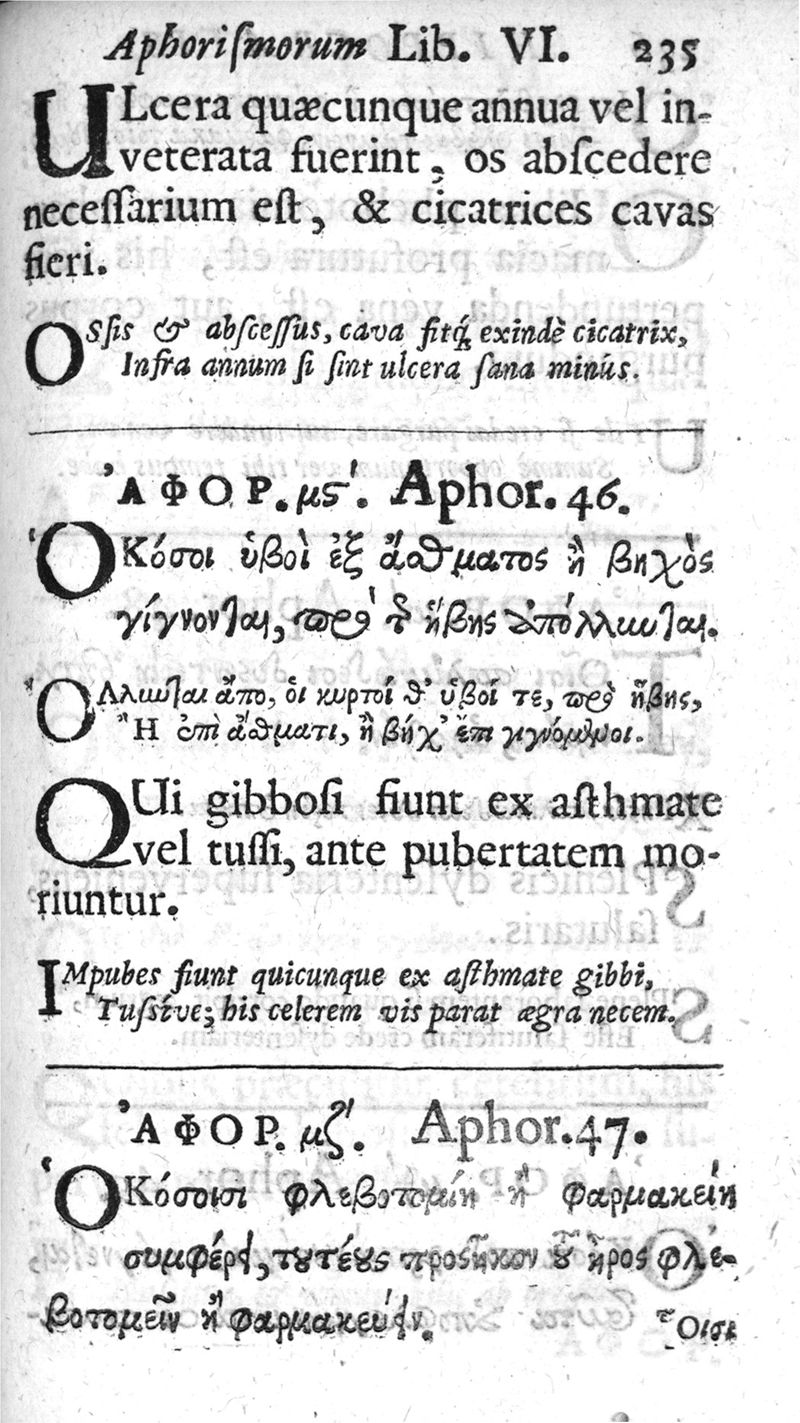 Aphoriſmorum Lib. VI. 235
ULcera quæcunque annua vel in-
veterata fuerint, os abſcedere
neceſſarium eſt, & cicatrices cavas
fieri.
OSſis & abſceſſus, cava fitq́; exindè cicatrix,
Infra annum ſi ſint ulcera ſana minùs.
ʼΑΦΟΡ. μϛʹ. Aphor. 46.
ὉΚόσοι ὑβοὶ ἐξ ἄσθματος ἢ βηχὸς
γίγνονται, πρὸ τ͂ ἥβης ἀπόλλυνται.
ὌΛλυνται ἄπο, οἱ κυρτοί θ' ὑβοί τε, πρὸ ἥβης,
Ἢ ἐπὶ ἄσθματι, ἢ βήχ' ἔπι γιγνόμενοι.
QUi gibboſi fiunt ex aſthmate
vel tuſſi, ante pubertatem mo-
riuntur.
IMpubes fiunt quicunque ex aſthmate gibbi,
Tuſsíve; his celerem vis parat ægra necem.
ʼΑΦΟΡ. μζʹ. Aphor. 47.
ὉΚόσοισι φλεβοτομίη ἢ φαρμακείη
συμφέρει, τουτέους προσῆκον τοῦ ἦρος φλε-
βοτομεῖν ἢ φαρμακεύειν.
Οισι